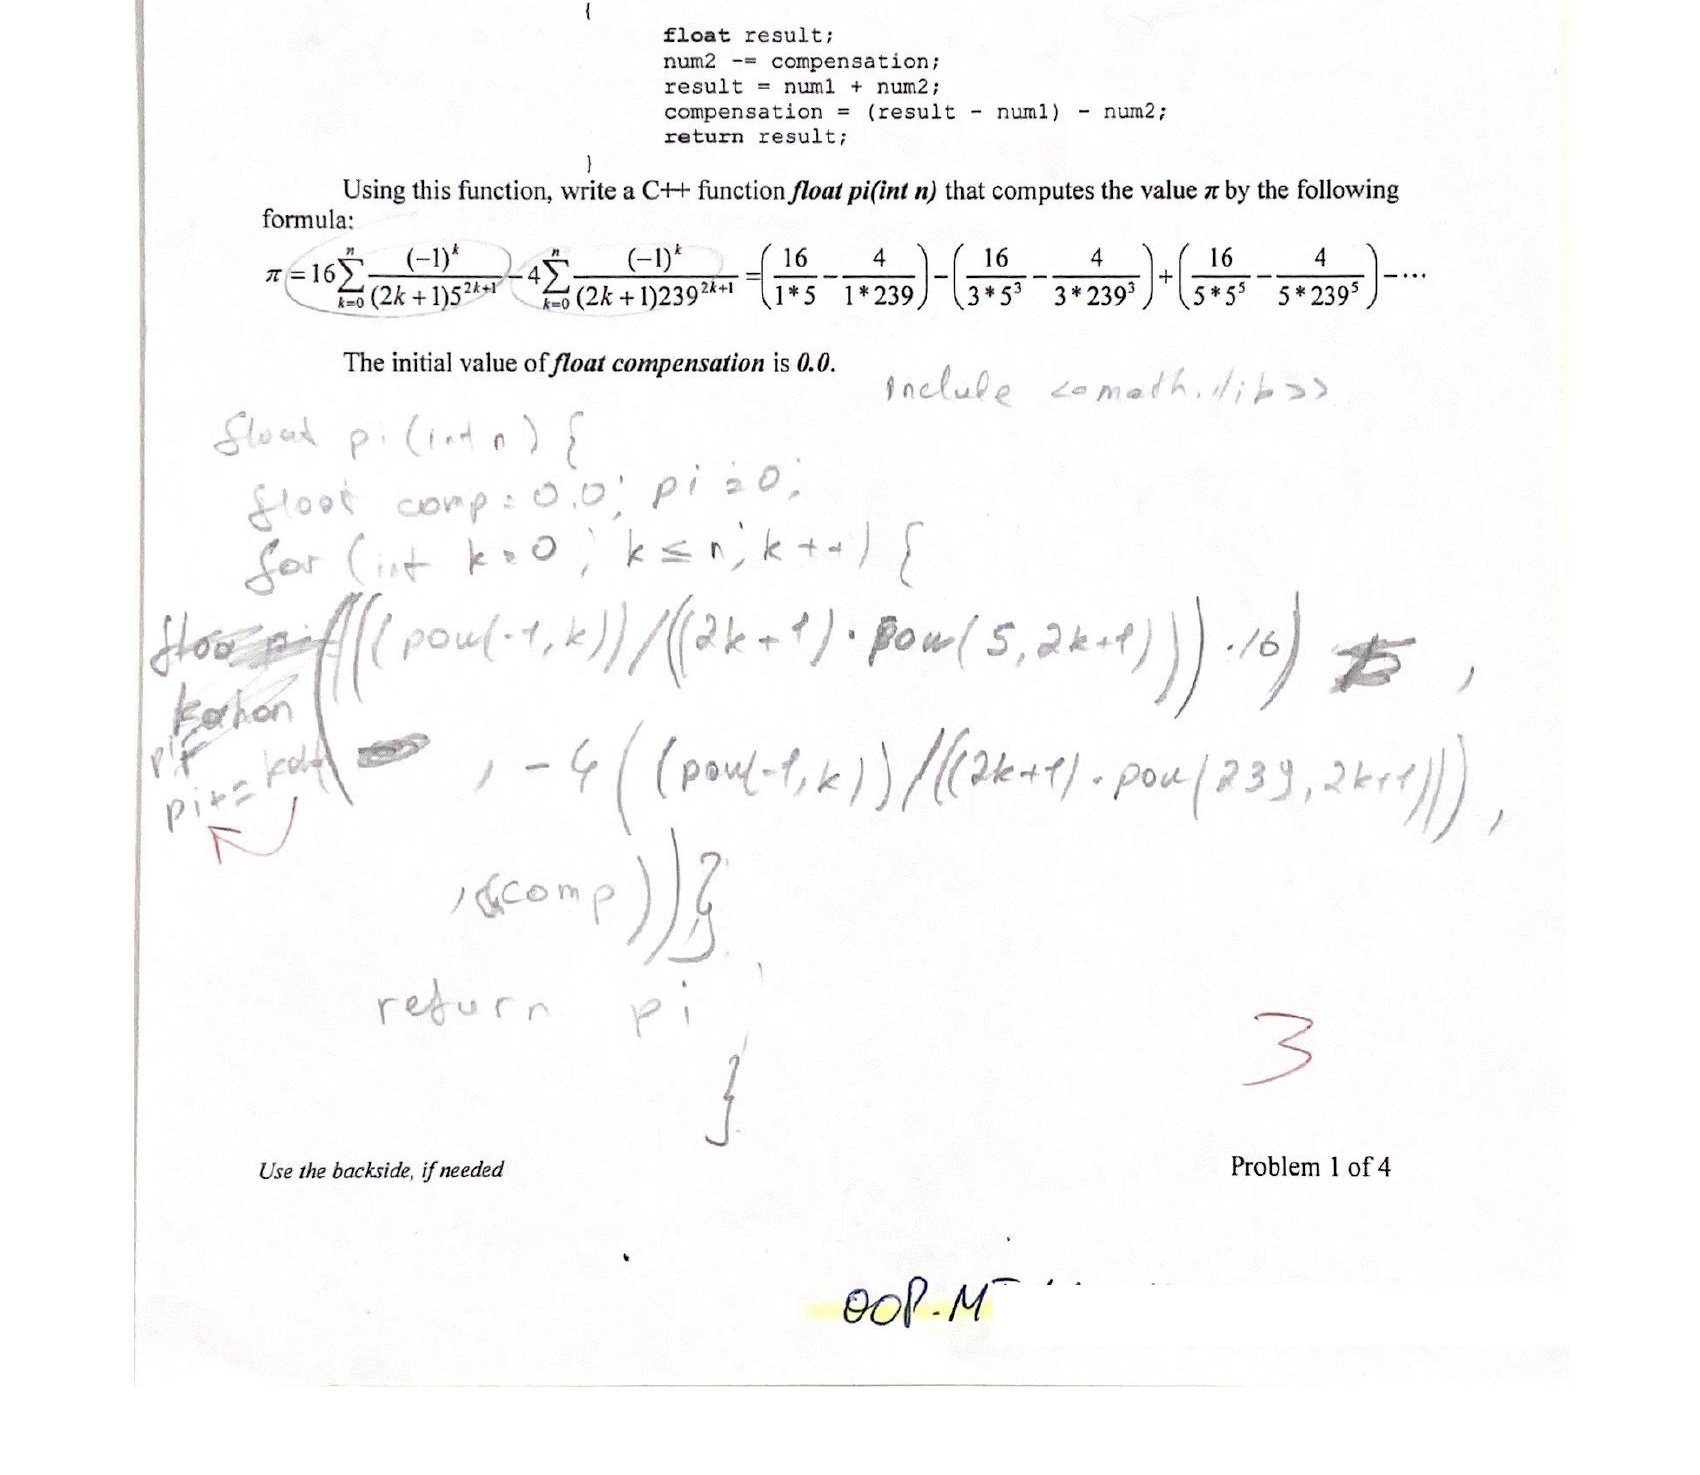 {
float result;
num2 -= compensation;
result = num1 + num2;
compensation = (result - num1) - num2;
return result;
}
Using this function, write a C++ function float pi(int n) that computes the value π by the following
formula:
π = 16 ∑_{k=0}^{n} (-1)^k / ((2k+1)5^{2k+1}) - 4 ∑_{k=0}^{n} (-1)^k / ((2k+1)239^{2k+1}) = (16/(1*5) - 4/(1*239)) - (16/(3*5^3) - 4/(3*239^3)) + (16/(5*5^5) - 4/(5*239^5)) - ...
The initial value of float compensation is 0.0.
include <<math.lib>>
float pi(int n) {
float comp = 0.0; pi = 0;
for (int k = 0; k ≤ n; k++) {
((((pow(-1,k))/((2k+1)·pow(5,2k+1)))·16) ,
pi+=
, -4((pow(-1,k))/((2k+1)·pow(239,2k+1))) ,
, &comp)) }
return pi
}
3
Use the backside, if needed
Problem 1 of 4
OOP-MT